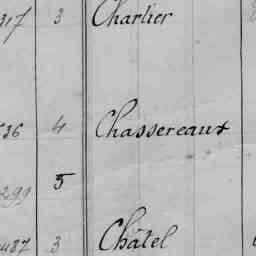 317 3 Charlier
536 4 Chassereaux
299 5
487 3 Châtel